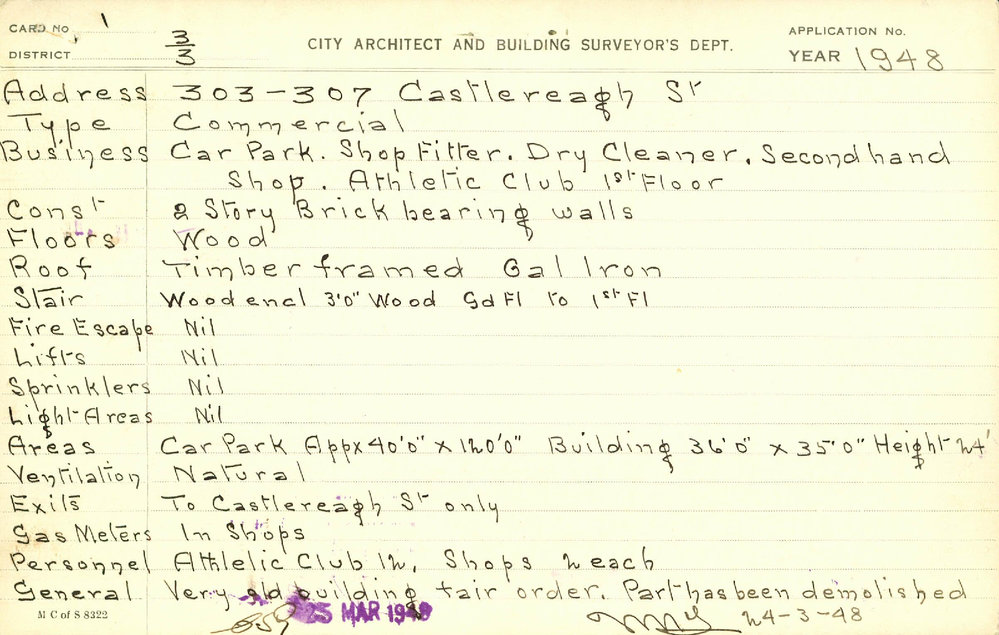 CARD No 1
DISTRICT 3/3
CITY ARCHITECT AND BUILDING SURVEYOR'S DEPT.
APPLICATION No.
YEAR 1948
Address 303-307 Castlereagh St
Type Commercial
Business Car Park. Shop Fitter. Dry Cleaner. Second hand
Shop. Athletic Club 1st Floor
Const 2 Story Brick bearing walls
Floors Wood
Roof Timber framed Gal Iron
Stair Wood encl 3'0" Wood Gd Fl to 1st Fl
Fire Escape Nil
Lifts Nil
Sprinklers Nil
Light Areas Nil
Areas Car Park Appx 40'0" x 120'0" Building 36'0" x 35'0" Height 24'
Ventilation Natural
Exits To Castlereagh St only
Gas Meters In Shops
Personnel Athletic Club 12, Shops 2 each
General Very old building fair order. Part has been demolished
M C of S 8322
25 MAR 1948
24-3-48